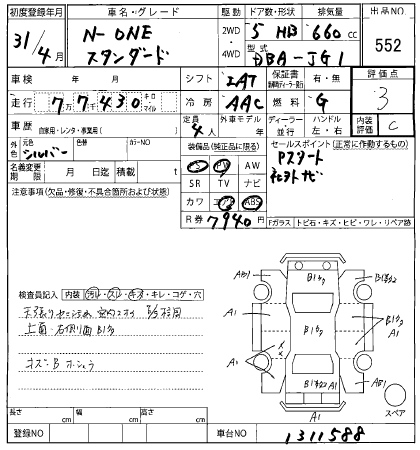 初度登録年月
車名・グレード
駆動
ドア数・形状
排気量
出品NO
31/4月
N-ONE
スタンダード
2WD
・
4WD
5 HB
660cc
型式
DBA-JG1
552
車検 年 月
シフト
IAT
保証書
有・無
評価点
3
走行 7万7430 キロ・マイル
冷房
AAC
燃料
G
車歴
自家用・レンタ・事業用( )
定員
4人
外車モデル
年
ディーラー
並行
ハンドル
左・右
内装評価
C
元色
シルバー
色替
カラーNO
装備品(純正品に限る)
セールスポイント(正常に作動するもの)
名義変更期限 月 日迄
積載 t
S・PW AW
SR TV ナビ
カワ エアB ABS
R券 7940円
Pスタート
社外ナビ
注意事項(欠品・修復・不具合箇所および状態)
Fガラス トビ石・キズ・ヒビ・ワレ・リペア跡
検査員記入
内装
汚れ・スレ・キズ・キレ・コゲ・穴
上面・右側面B1多
キズ・B
AB1
A1
B1多
A1
A1
B1多
A1
AB1
A1
スペア
長さ cm
幅 cm
高さ cm
登録NO
車台NO
1311588